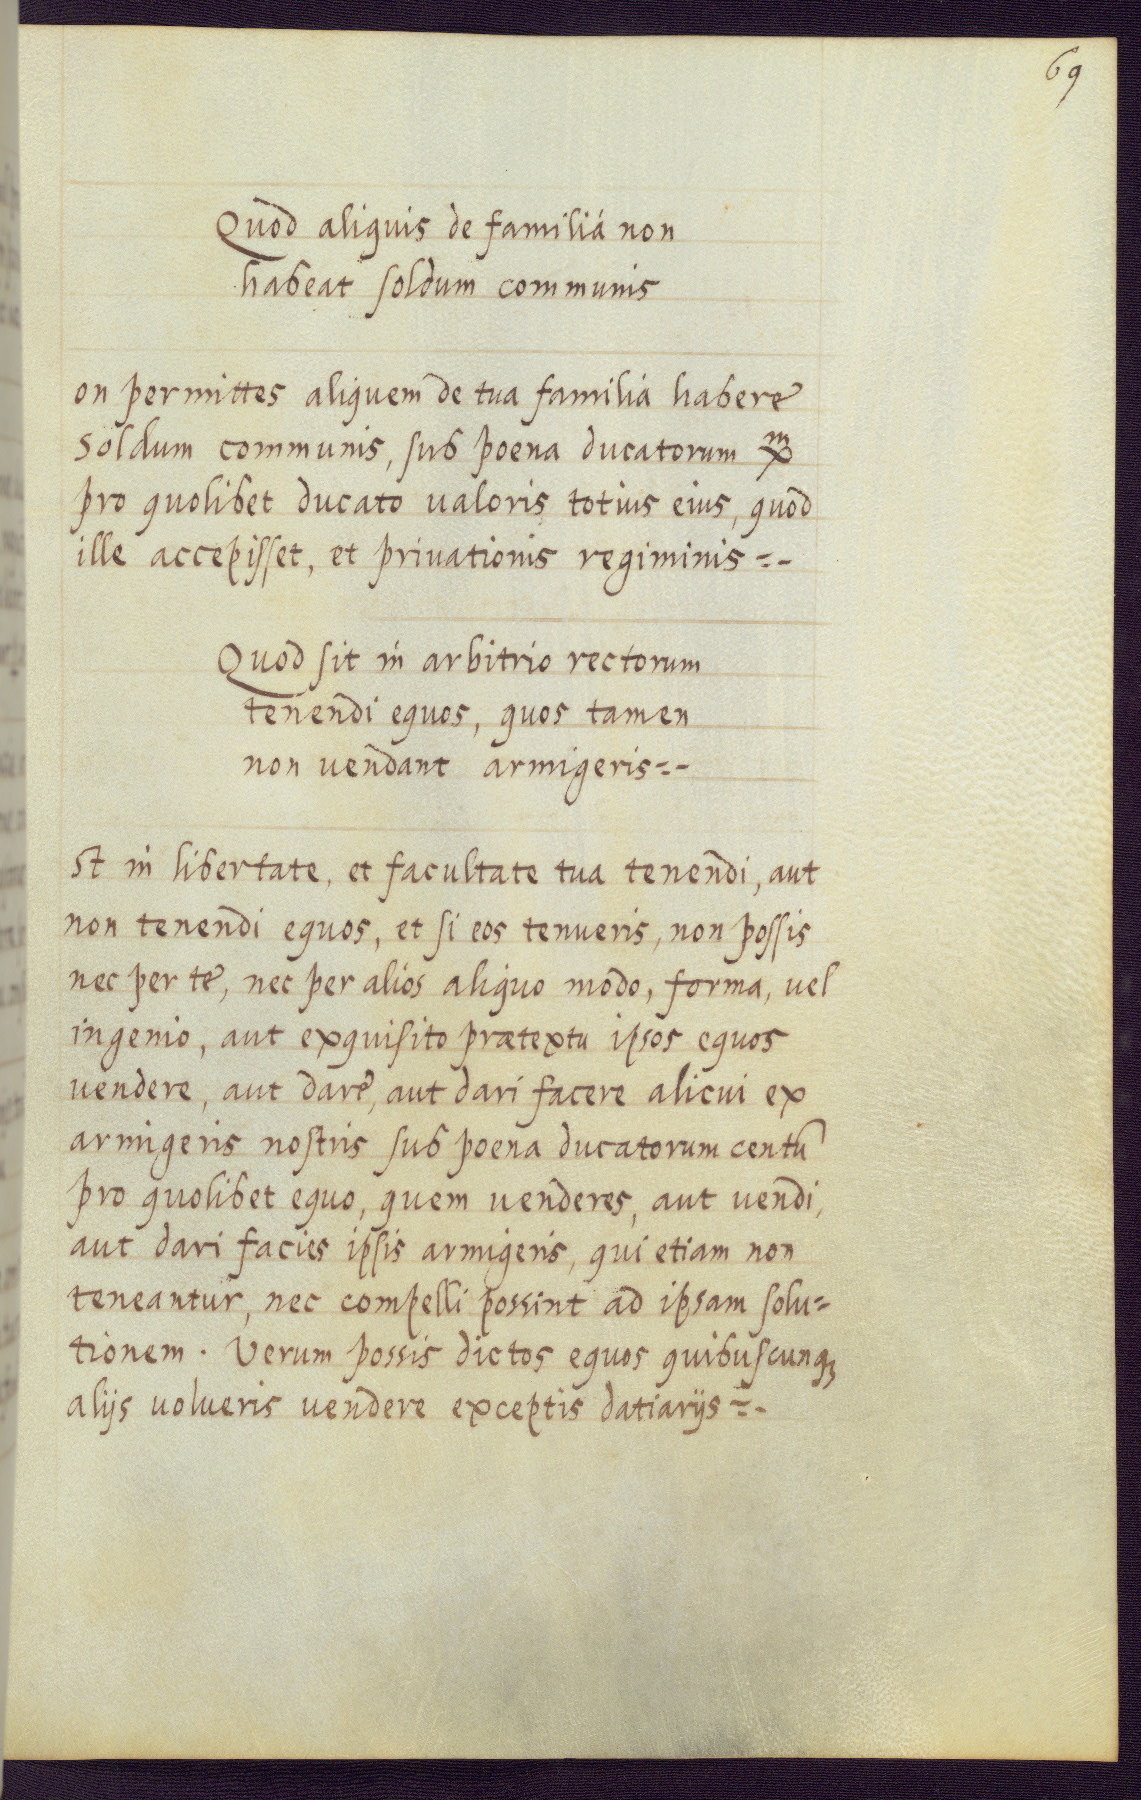 69
Quod aliquis de familiá non
habeat soldum communis
on permittes aliquem de tua familiá habere
Soldum communis, sub poena ducatorum xᵐ
pro quolibet ducato valoris totius eius, quod
ille accepisset, et privationis regiminis =-
Quod sit in arbitrio rectorum
tenendi equos, quos tamen
non vendant armigeris =-
st in libertate, et facultate tua tenendi, aut
non tenendi equos, et si eos tenueris, non possis
nec per te, nec per alios aliquo modo, forma, vel
ingenio, aut exquisito prætextu ipsos equos
vendere, aut dare, aut dari facere alicui ex
armigeris nostris sub poena ducatorum centũ
pro quolibet equo, quem venderes, aut vendi,
aut dari facies ipsis armigeris, qui etiam non
teneantur, nec compelli possint ad ipsam solu=
tionem. Verum possis dictos equos quibuscunqȝ
alijs volueris vendere exceptis datiarijs =-